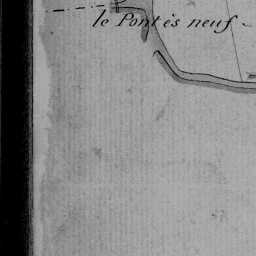 le Pont ès neuf